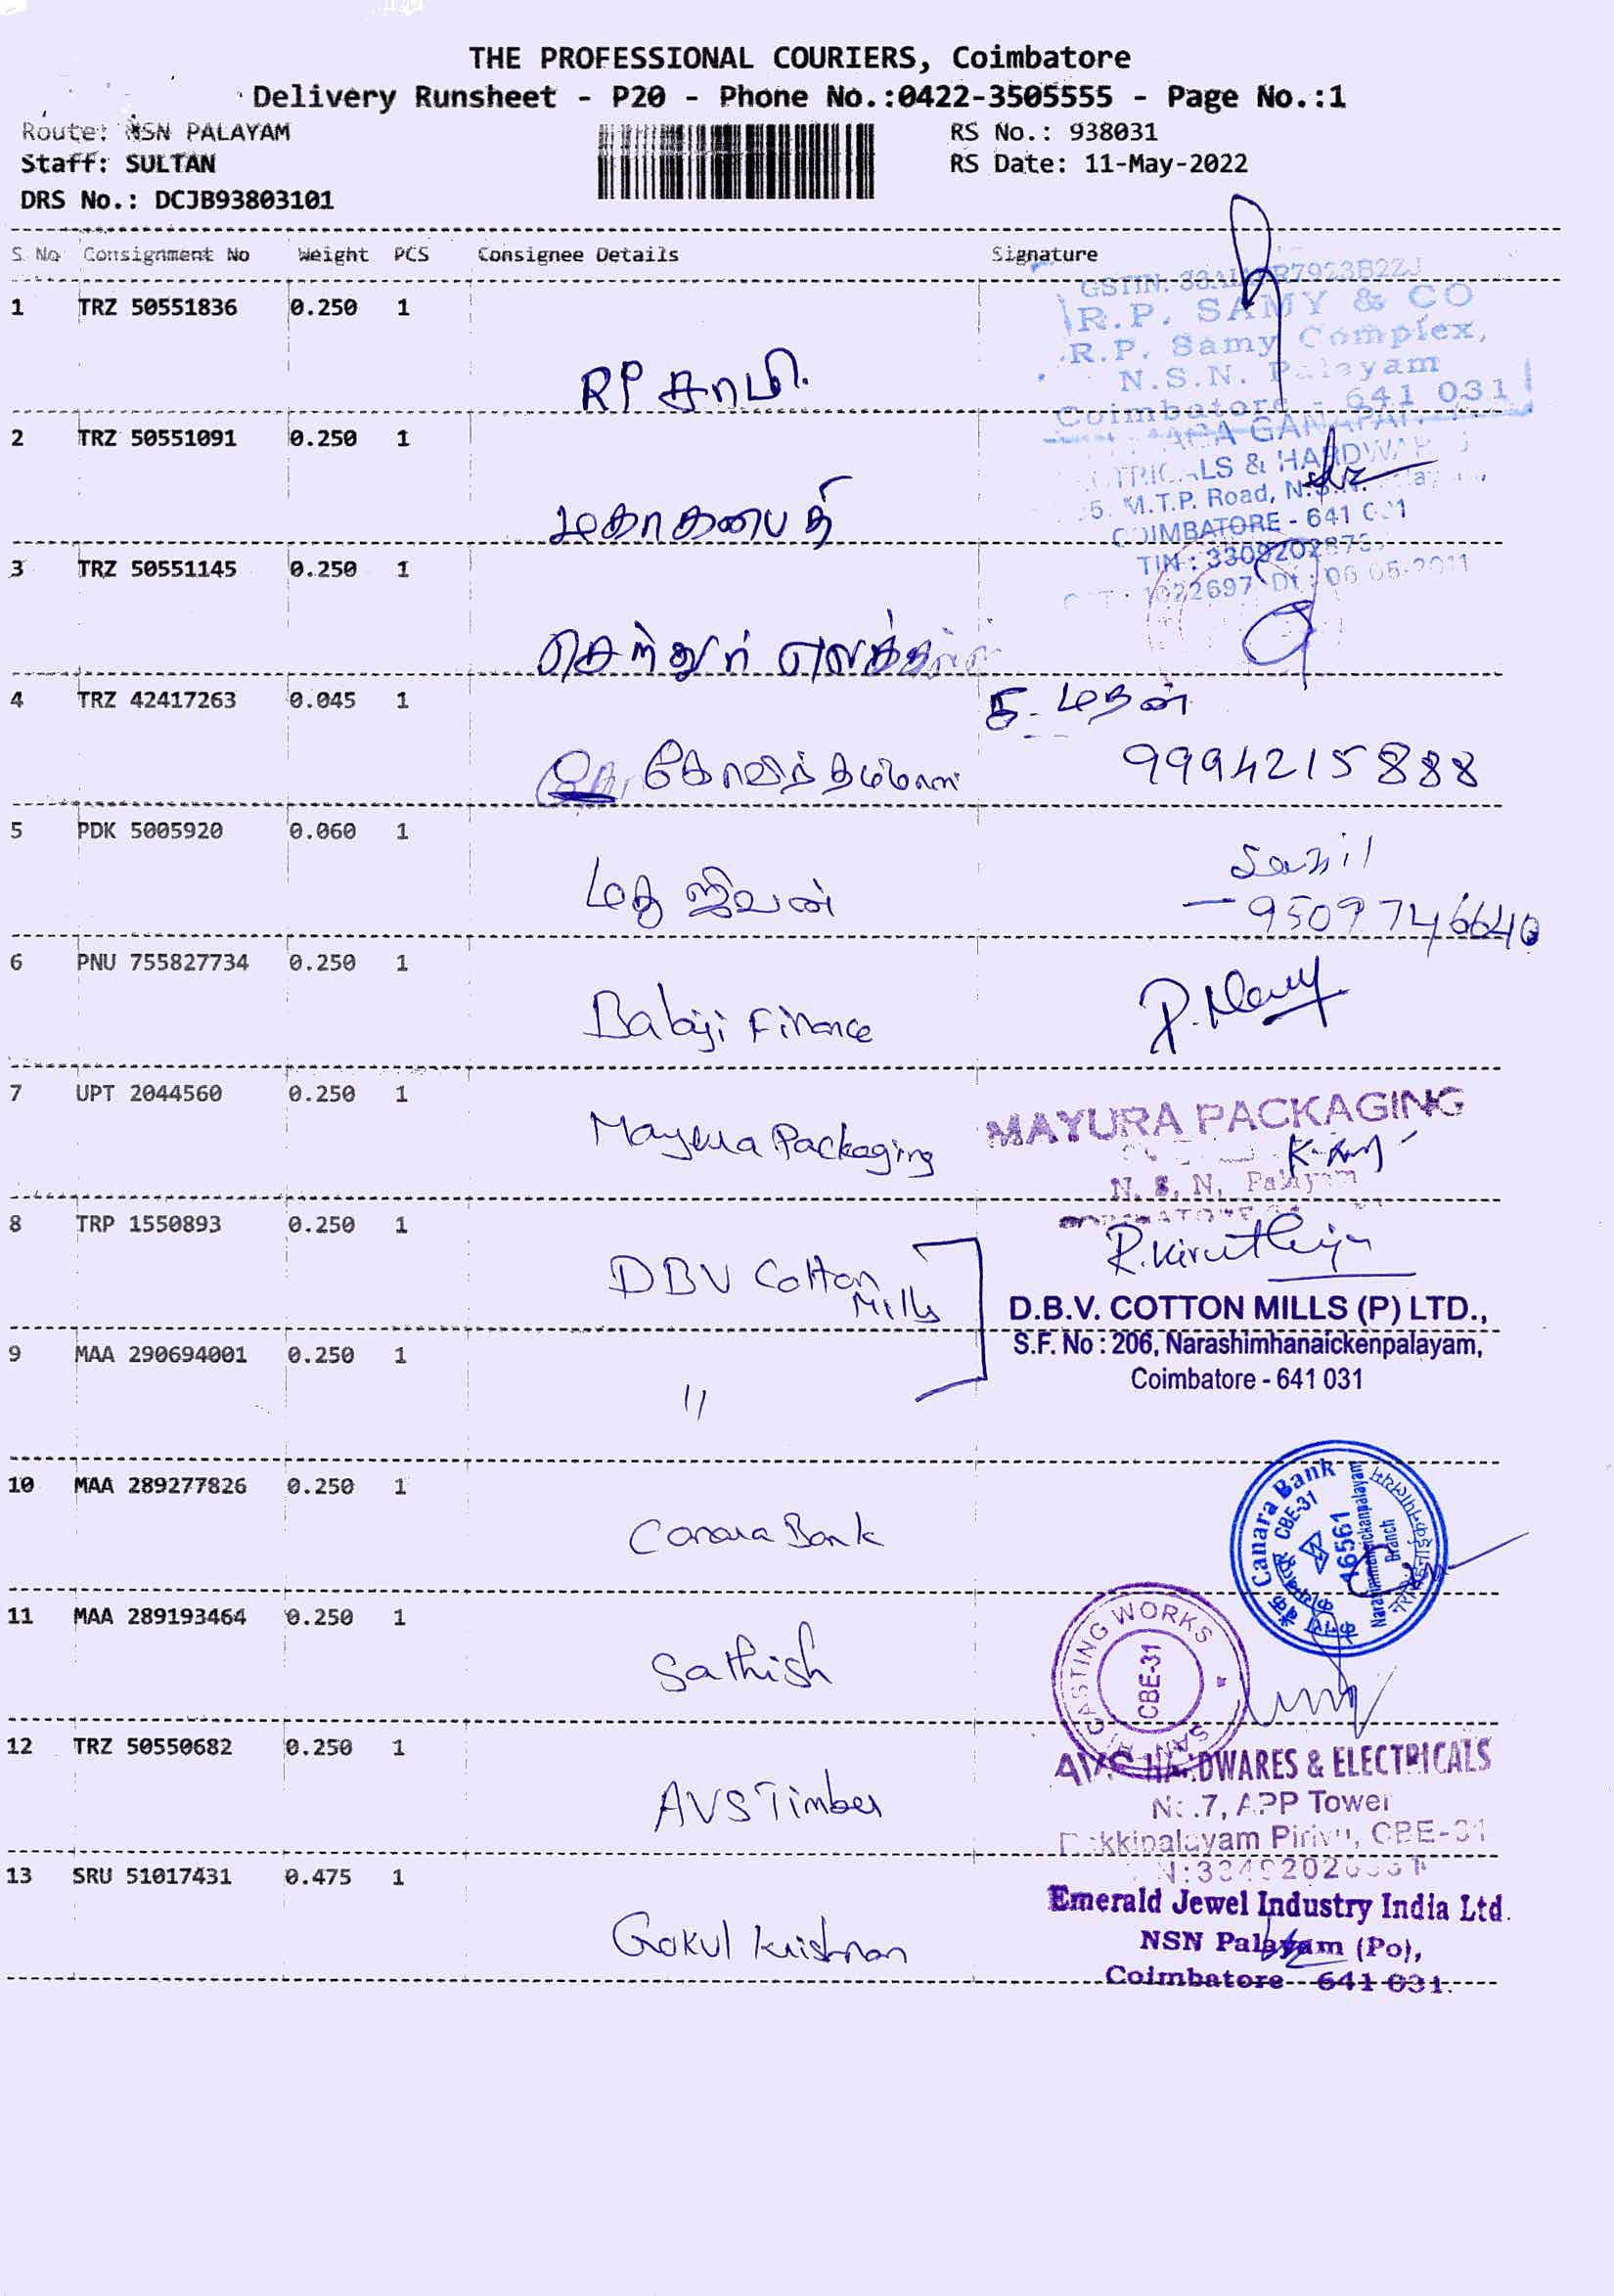 THE PROFESSIONAL COURIERS, Coimbatore
Delivery Runsheet - P20 - Phone No.:0422-3505555 - Page No.:1
Route: NSN PALAYAM
RS No.: 938031
Staff: SULTAN
RS Date: 11-May-2022
DRS No.: DCJB93803101
S No Consignment No Weight PCS Consignee Details Signature
1 TRZ 50551836 0.250 1
R.P. SAMY & CO
R.P. Samy Complex,
N.S.N. Palayam
RP சாமி.
Coimbatore - 641 031
2 TRZ 50551091 0.250 1
M.T.P. Road,
COIMBATORE - 641
TIN :
3 TRZ 50551145 0.250 1
Dt : 06-05-2011
செந்தூர்
4 TRZ 42417263 0.045 1
9994215888
5 PDK 5005920 0.060 1
மது ஜீவன்
9509746640
6 PNU 755827734 0.250 1
Balaji Finance
7 UPT 2044560 0.250 1
MAYURA PACKAGING
Mayura Packaging
N. S. N. Palayam
8 TRP 1550893 0.250 1
R. Kiruthiga
DBV Cotton
Mills
D.B.V. COTTON MILLS (P) LTD.,
S.F. No : 206, Narashimhanaickenpalayam,
9 MAA 290694001 0.250 1
Coimbatore - 641 031
"
10 MAA 289277826 0.250 1
Canara Bank
Canara Bank
CBE-31
46561
Narasimmanaickanpalayam
Branch
11 MAA 289193464 0.250 1
CASTING WORKS
CBE-31
Sathish
12 TRZ 50550682 0.250 1
AVS HARDWARES & ELECTRICALS
No.7, APP Tower
AVS Timber
Pirivu, CBE-31
13 SRU 51017431 0.475 1
Emerald Jewel Industry India Ltd.
Gokul Krishnan
NSN Palayam (Po),
Coimbatore - 641 031.